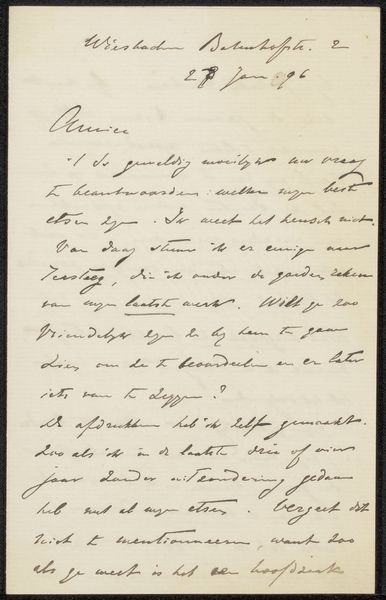 Wiesbaden Bahnhofstr. 2
27 Jan. 96
Amice
't Is geweldig moeilijk uw vraag
te beantwoorden: welke mijn best
etsen zijn. Ik weet het heusch niet.
Van daag stuur ik er eenige aan
Tersteeg, die ik onder de goeden reken
van mijn laatste werk. Wilt ge zoo
vriendelijk zijn te bij hem te gaan
zien om de te beoordeelen en er later
iets van te zeggen?
De afdrukken heb ik zelf gemaakt.
Zoo als ik in de laatste drie of vier
jaar zonder uitzondering gedaan
heb met al mijn etsen. Vergeet dit
niet te mentionneeren, want zoo
als ge weet is het een hoofdzaak